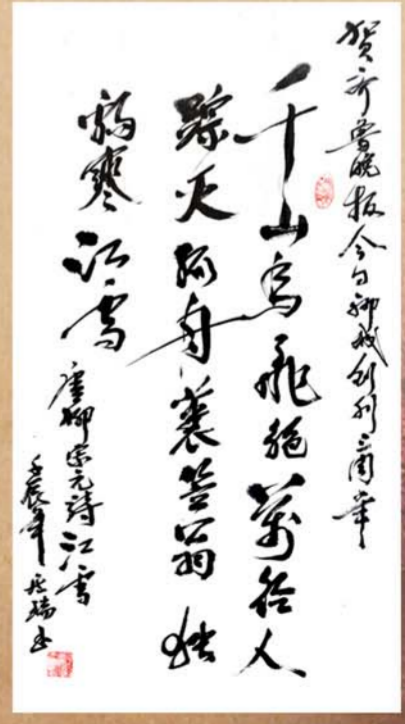 贺齐鲁晚报今日聊城创刊三周年
千山鸟飛絶萬径人
踪灭孤舟蓑笠翁独
钓寒江雪
唐柳宗元诗江雪
壬辰年瑞书